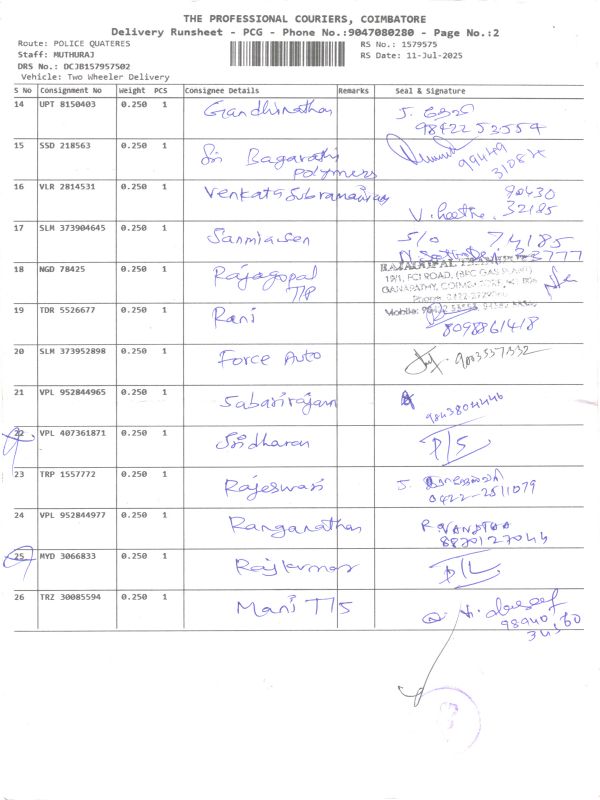 THE PROFESSIONAL COURIERS, COIMBATORE
Delivery Runsheet - PCG - Phone No.:9047080280 - Page No.:2
Route: POLICE QUATERES
RS No.: 1579575
Staff: MUTHURAJ
RS Date: 11-Jul-2025
DRS No.: DCJB157957502
Vehicle: Two Wheeler Delivery
S No Consignment No Weight PCS Consignee Details Remarks Seal & Signature
14 UPT 8150403 0.250 1 Gandhinathan
98422 53554
15 SSD 218563 0.250 1 Sri Bagarathi
polymers
99449
16 VLR 2814531 0.250 1 Venkatasubramaniyan
90430
32185
17 SLM 373904645 0.250 1 Sanmiasen S/o 74185
18 NGD 78425 0.250 1 Rajagopal
T/P
19/1, FCI ROAD, (BPC GAS PLANT)
GANAPATHY, COIMBATORE
19 TDR 5526677 0.250 1 Rani
8098861418
20 SLM 373952898 0.250 1 Force Auto
21 VPL 952844965 0.250 1 Sabarirajam
9843804446
22 VPL 407361871 0.250 1 Sridharan D/S
23 TRP 1557772 0.250 1 Rajeswari J.
0422-2511079
24 VPL 952844977 0.250 1 Ranganathan
8870127044
25 MYD 3066833 0.250 1 Rajkumar D/L
26 TRZ 30085594 0.250 1 Mani T/S
98940